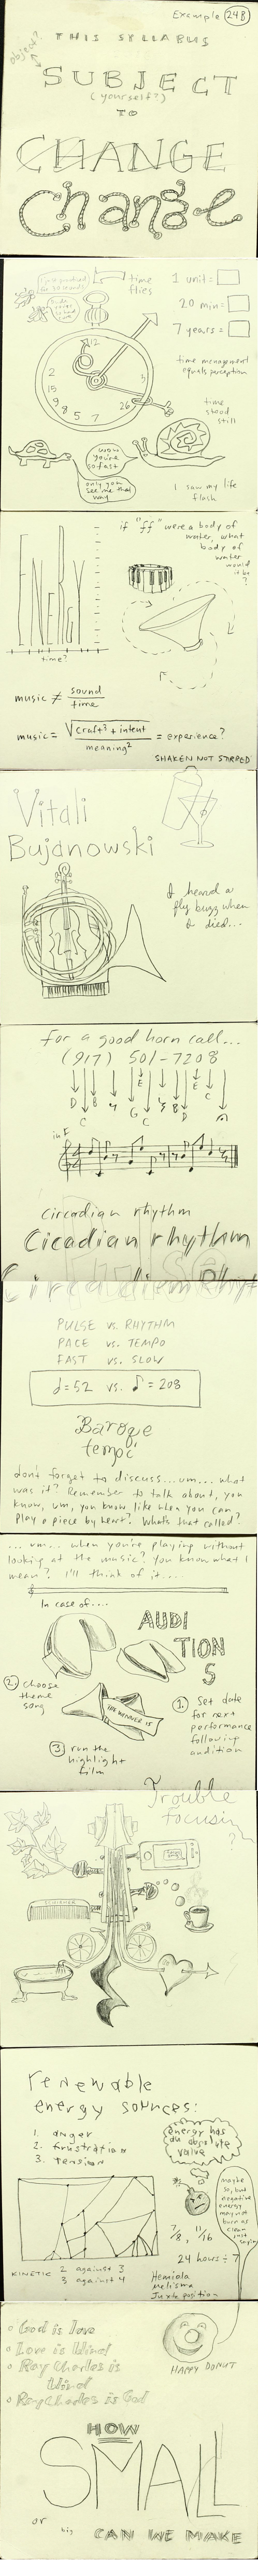 Example 24B
object?
THIS SYLLABUS
SUBJECT
(yourself?)
TO
CHANGE
Change
time
flies
1 unit =
20 min =
7 years =
12
2
3
15
9
8
5
7
26
time management
equals perception
time
stood
still
wow
you're
so fast
only you
see me that
way
I saw my life
flash
if "ff" were a body of
water, what
body of
water
would
it be
?
ENERGY
time?
music ≠ sound
time
music = √craft³ + intent = experience?
meaning²
SHAKEN NOT STIRRED
Vitali
Bujanowski
I heard a
fly buzz when
I died...
for a good horn call...
(917) 501-7208
D
C
B
G
E
C
B
D
E
C
in F
Circadian rhythm
Cicadian rhythm
PULSE vs. RHYTHM
PACE vs. TEMPO
FAST vs. SLOW
𝅗𝅥=52 vs. ♪=208
Baroque
tempi
don't forget to discuss... um... what
was it? Remember to talk about, you
know, um, you know like when you can
play a piece by heart? What's that called?
... um... when you're playing without
looking at the music? You know what I
mean? I'll think of it...
In case of....
AUDI
TION
S
② choose
theme
song
THE WINNER IS
① set date
for next
performance
following
audition
③ run the
highlight
film
Trouble
focusing
?
renewable
energy sources:
1. anger
2. frustration
3. tension
energy has
an absolute
value
maybe
so, but
negative
energy
may not
burn as
clean
just
sayin
7/8, 11/16
24 hours ÷ 7
KINETIC 2 against 3
3 against 4
Hemiola
Melisma
Juxtaposition
God is love
Love is blind
Ray Charles is
blind
Ray Charles is God
HAPPY DONUT
HOW
SMALL
or
big
CAN WE MAKE